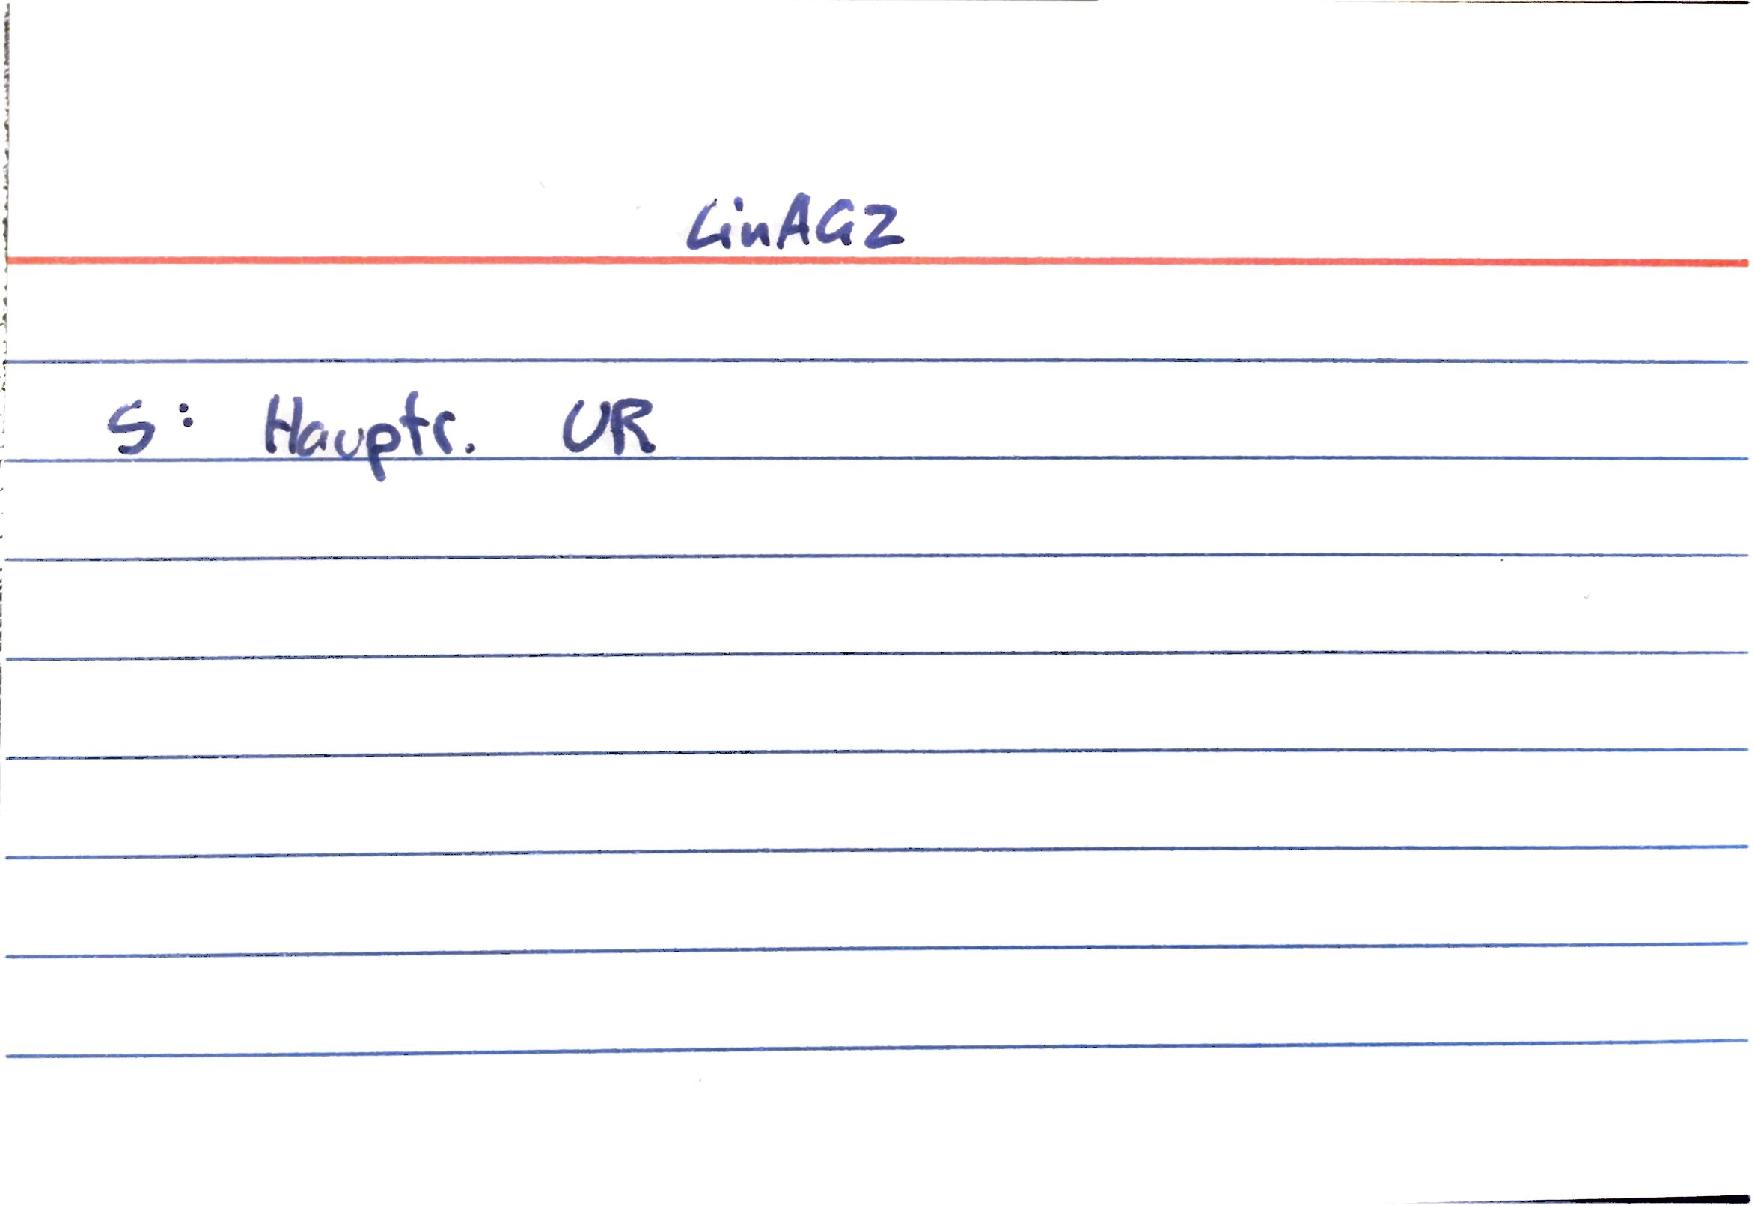 LinAG2
S: Hauptr. UR